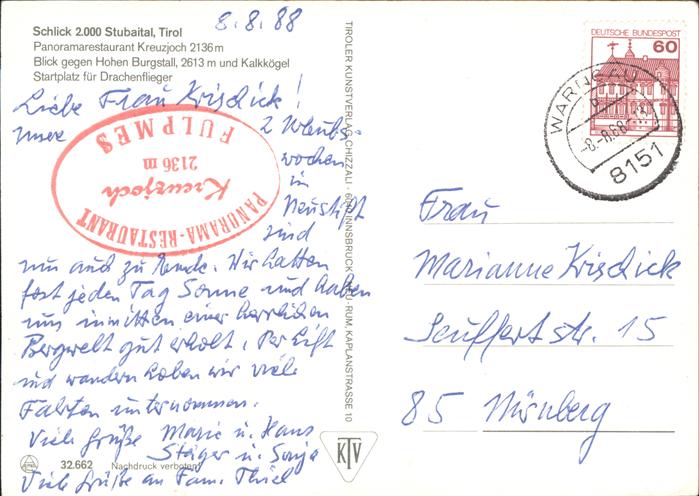 8.8.88
Schlick 2.000 Stubaital, Tirol
Panoramarestaurant Kreuzjoch 2136 m
Blick gegen Hohen Burgstall, 2613 m und Kalkkögel
Startplatz für Drachenflieger
Liebe Frau Krisdick!
Unsere 2 Urlaubs-
wochen
in
Neustift
sind
nun auch zu Ende. Wir hatten
fast jeden Tag Sonne und haben
uns inmitten einer herrlichen
Bergwelt gut erholt. Per Lift
und wandern haben wir viele
Fahrten unternommen.
Viele Grüße Marie u. Hans
Steiger u. Sonja
Viele Grüße an Fam. Thiel
PANORAMA-RESTAURANT
Kreuzjoch
2136 m
FULPMES
32.662 Nachdruck verboten
TIROLER KUNSTVERLAG CHIZZALI · INNSBRUCK RUM, KAPLANSTRASSE 10
KTV
DEUTSCHE BUNDESPOST
60
WARNGAU
b
-8.-8.88-
8151
Frau
Marianne Krisdick
Seuffertstr. 15
85 Nürnberg